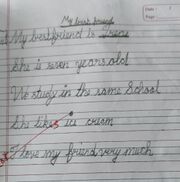 My best friend
My bestfriend is
She is seven years old
We study in the same School
She likes ice cream
I love my friend very much
Date :
Page :